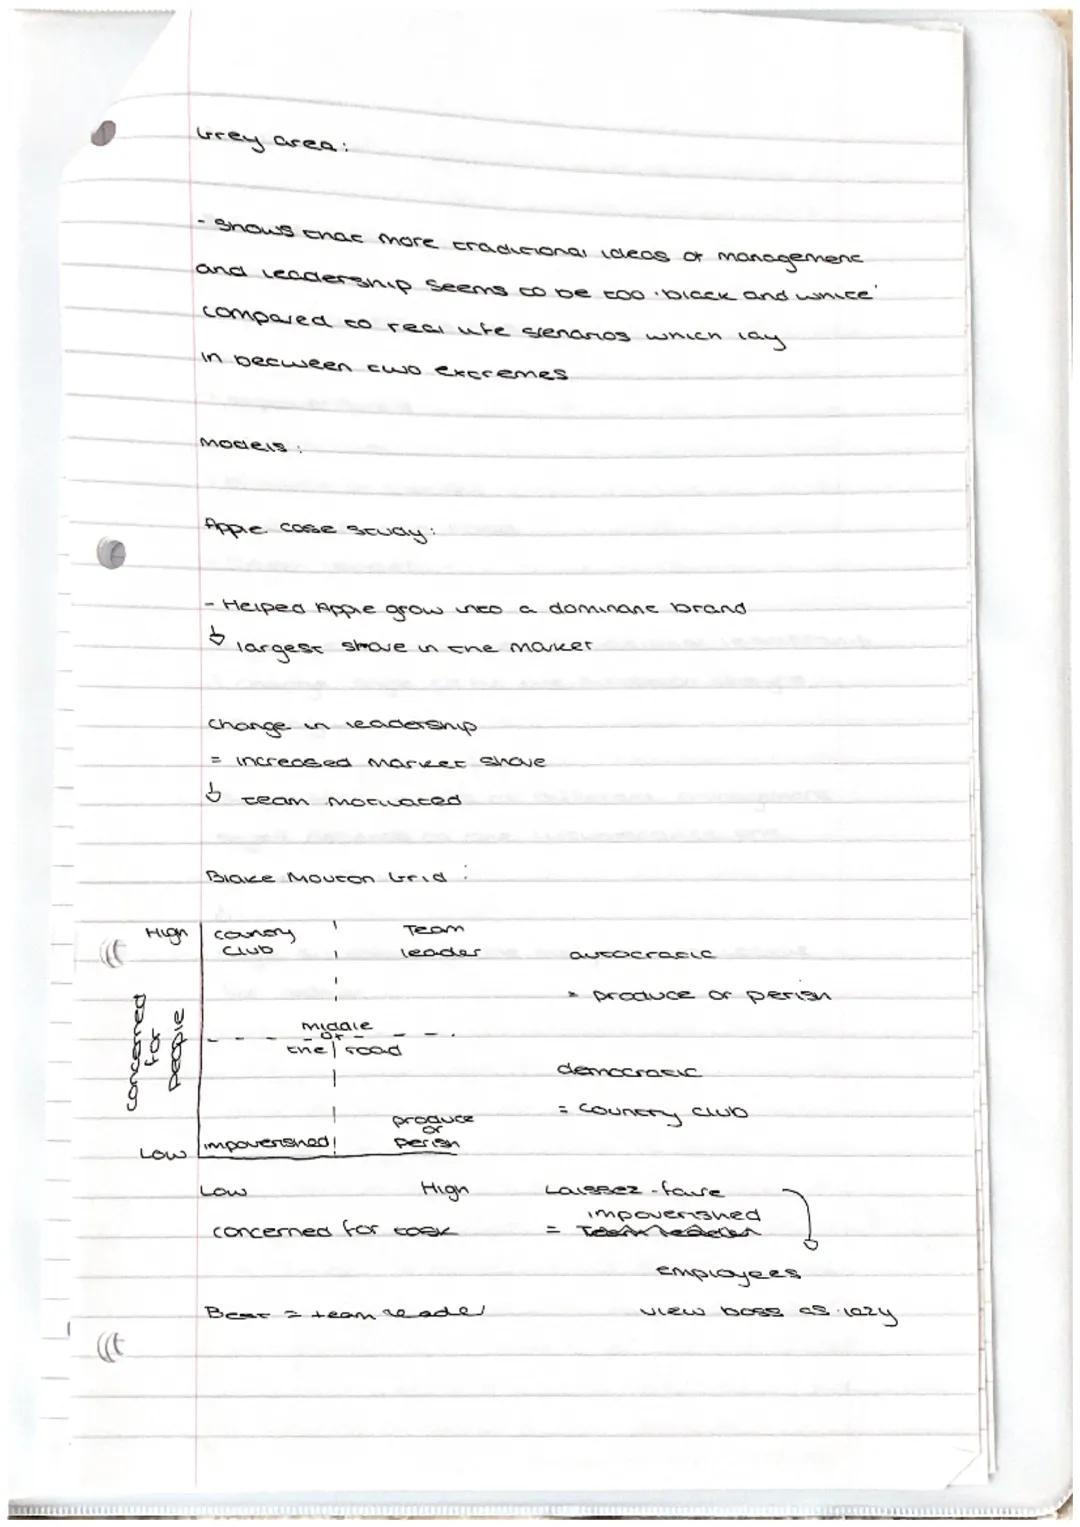 Grey area:
- Shows that more traditional ideas of management
and leadership seems to be too 'black and white'
compared to real life scenarios which lay
in between two extremes
Models:
Apple case study:
- Helped Apple grow into a dominant brand
↳ largest share in the market
change in leadership
= increased market share
↳ team motivated
Blake Mouton Grid:
High
country
club
Team
leader
autocratic
= produce or perish
concerned
for
people
middle
of
the road
democratic
= country club
produce
or
perish
Low
impoverished
Low
High
concerned for task
Laissez-faire
impoverished
= Team leader
employees
view boss as lazy
Best = team leader